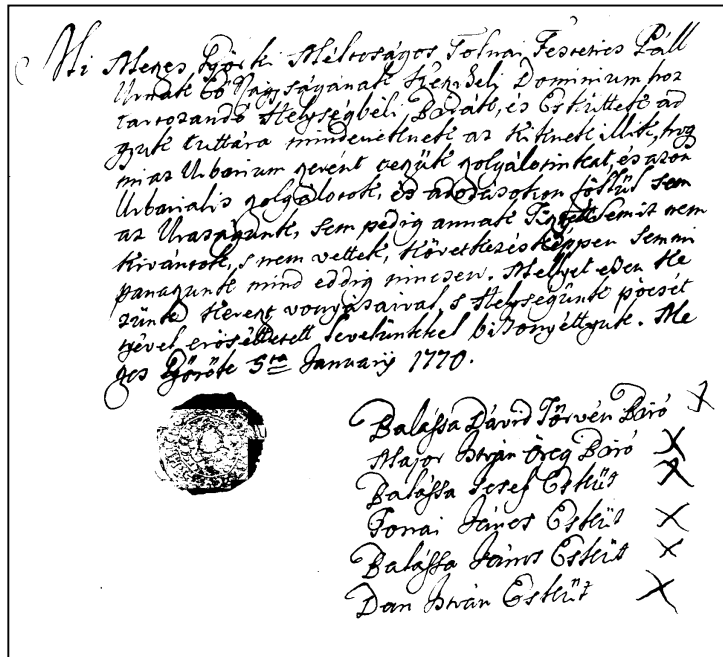 Mi Meges Györki Méltoságos Tolnai Festetics Páll
Urnak Eő Nagyságának Dominiumhoz
tartozandó Helységbéli Birák, és Esküttek ad
gyuk tuttára mindeneknek az kiknek illik, hogy
mi az Urbarium szerént veszük szolgálotinkat, és azon
Urbarialis szolgálotok, és adodásokon föllül sem
az Uraságunk, sem pedig annak Semit nem
kivántok, s nem vettek, következésképpen semmi
panaszunk mind eddig nincsen. Mellyet ezen Ke
zünk Kereszt vonyásaival, s Helységünk pöcsét
tyével erősséttetett levelünkkel bizonyéttyuk. Me
ges Györök 5ta Januarij 1770.
Balássa Dávid Törvén Biró X
Major István Öreg Biró X
Balássa Josef Esküt X
Tonai János Esküt X
Balássa János Eskütt X
Dan István Esküt X